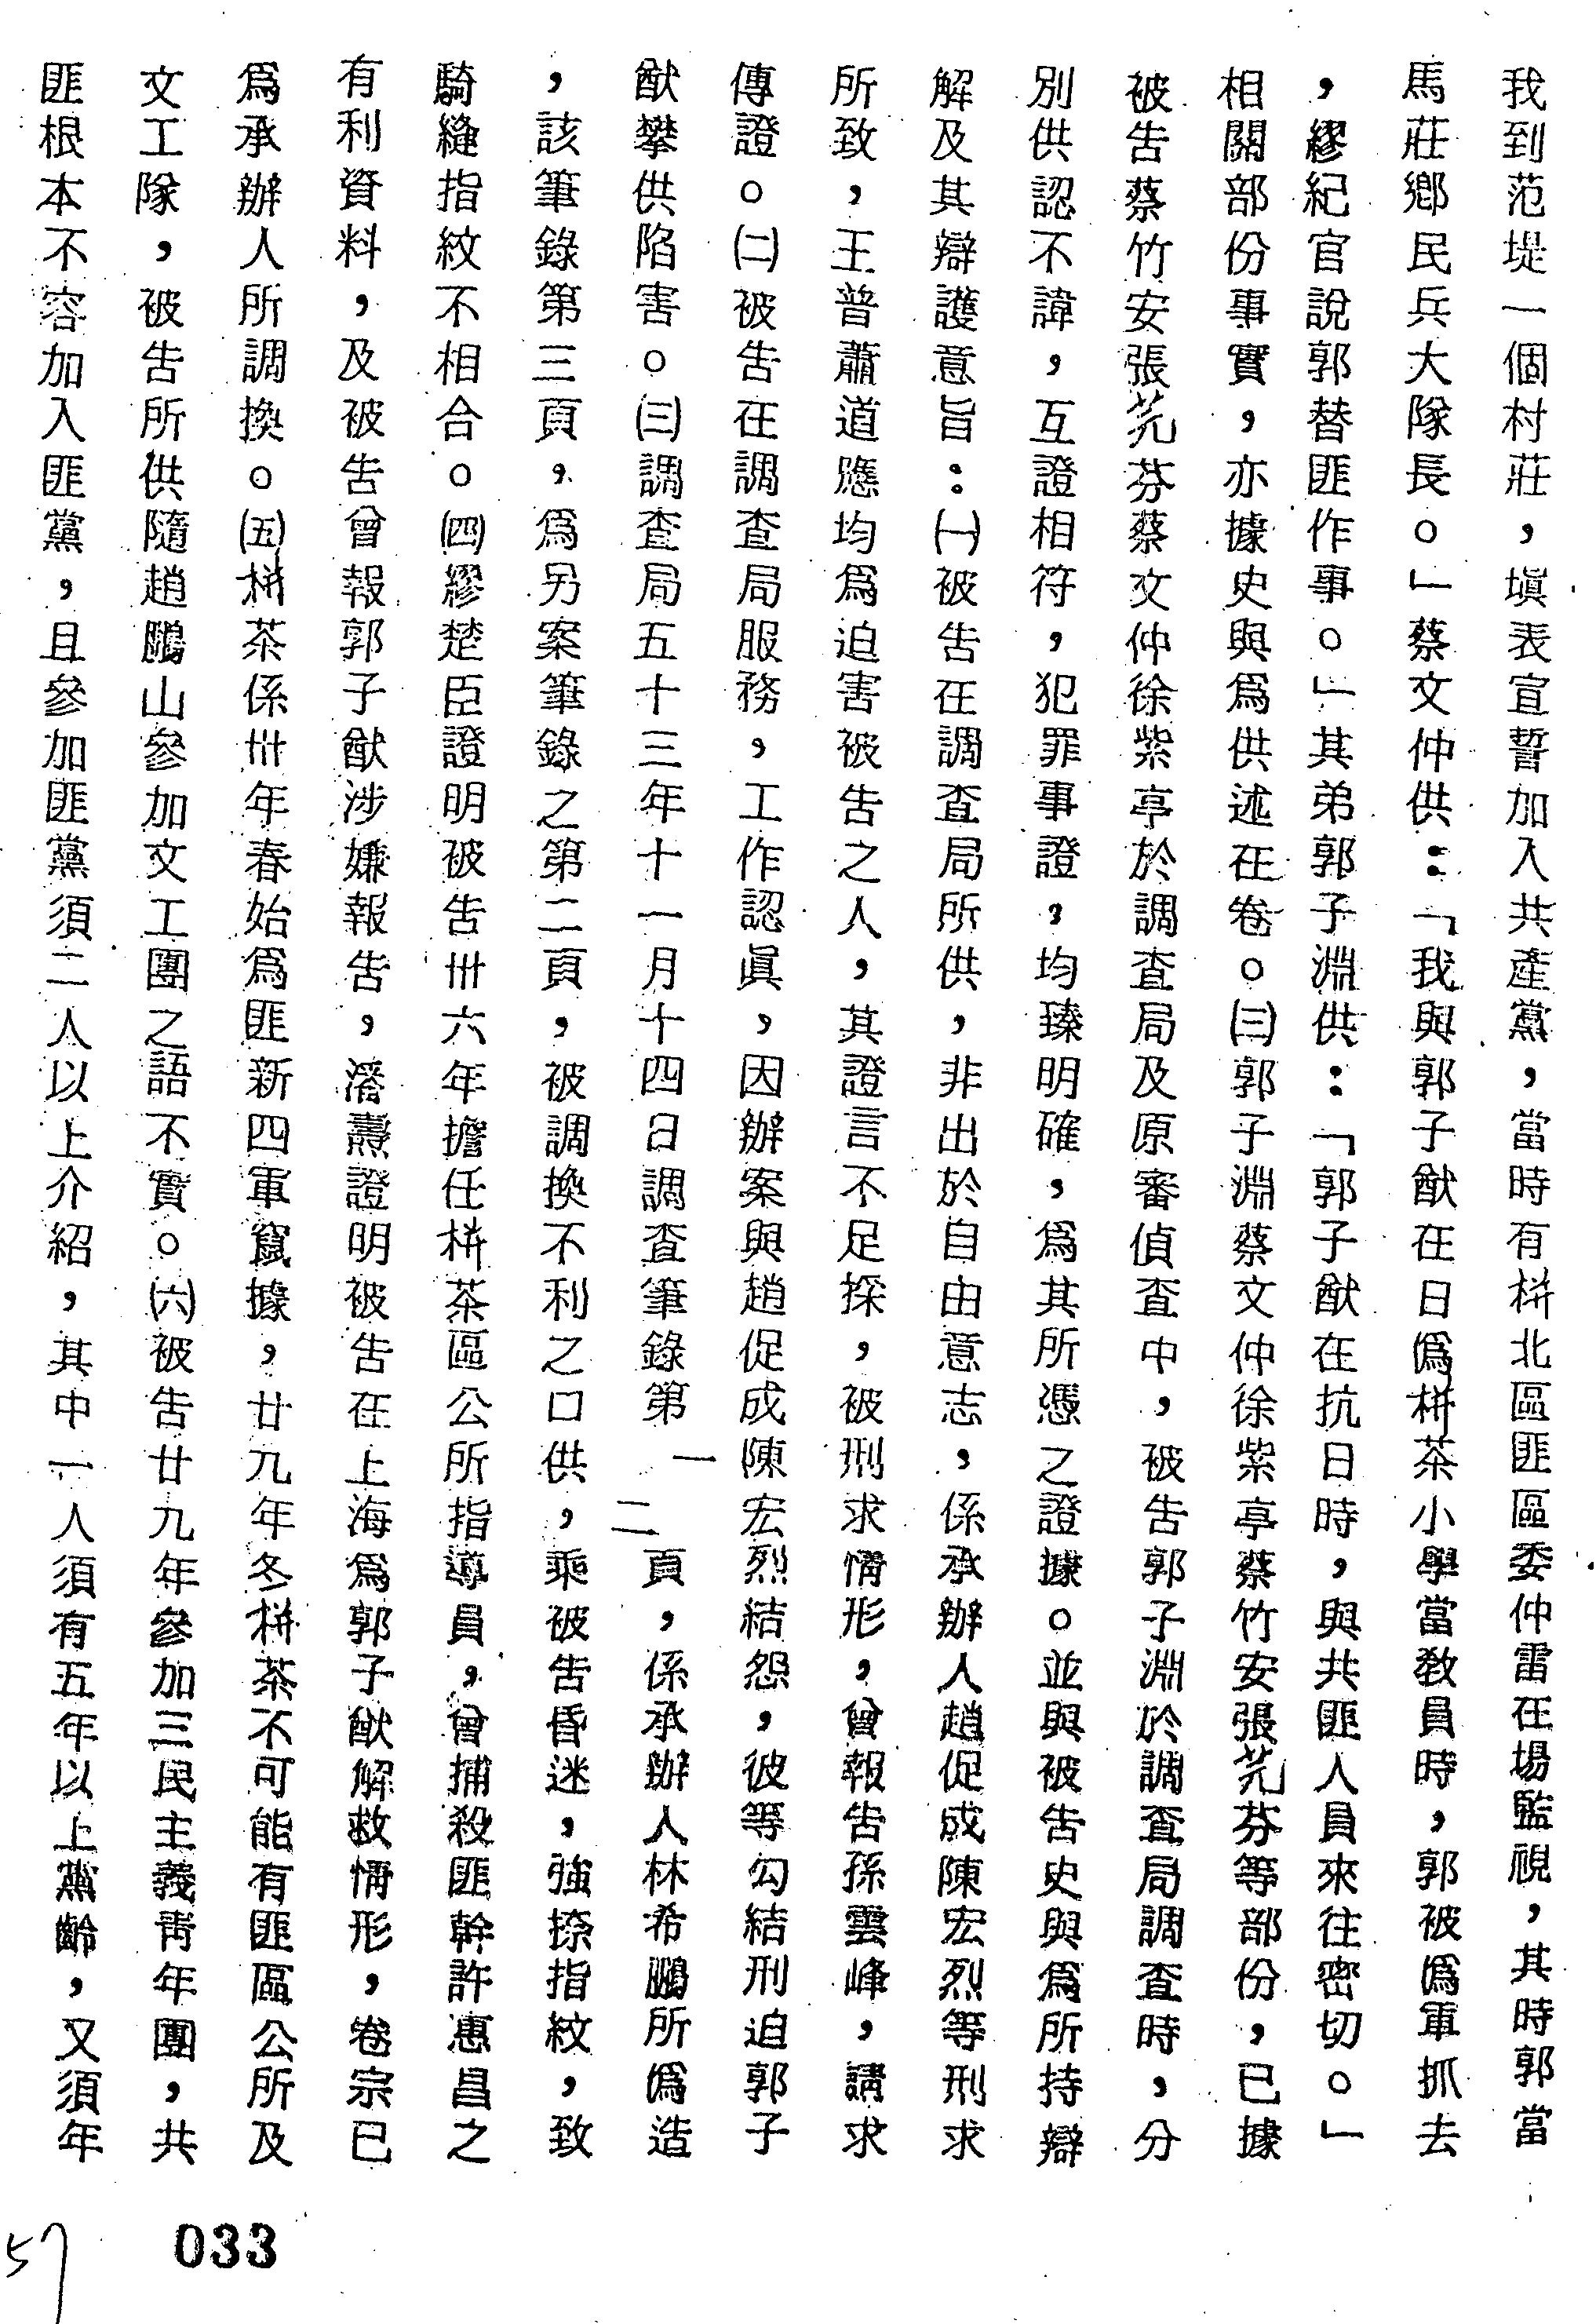 我到范堤一個村莊，塡表宣誓加入共產黨，當時有栟北區匪區委仲雷在場監視，其時郭當
馬莊鄉民兵大隊長。」蔡文仲供：「我與郭子猷在日僞栟茶小學當教員時，郭被僞軍抓去
，繆紀官說郭替匪作事。」其弟郭子淵供：「郭子猷在抗日時，與共匪人員來往密切。」
相關部份事實，亦據史與爲供述在卷。㈢郭子淵蔡文仲徐紫亭蔡竹安張芫芬等部份，已據
被告蔡竹安張芫芬蔡文仲徐紫亭於調查局及原審偵查中，被告郭子淵於調查局調查時，分
別供認不諱，互證相符，犯罪事證，均臻明確，爲其所憑之證據。並與被告史與爲所持辯
解及其辯護意旨：㈠被告在調查局所供，非出於自由意志，係承辦人趙促成陳宏烈等刑求
所致，王普蕭道應均爲迫害被告之人，其證言不足採，被刑求情形，曾報告孫雲峰，請求
傳證。㈡被告在調查局服務，工作認眞，因辦案與趙促成陳宏烈結怨，彼等勾結刑迫郭子
猷攀供陷害。㈢調查局五十三年十一月十四日調查筆錄第一二頁，係承辦人林希鵬所僞造
，該筆錄第三頁，爲另案筆錄之第二頁，被調換不利之口供，乘被告昏迷，強捺指紋，致
騎縫指紋不相合。㈣繆楚臣證明被告卅六年擔任栟茶區公所指導員，曾捕殺匪幹許惠昌之
有利資料，及被告曾報郭子猷涉嫌報告，潘壽證明被告在上海爲郭子猷解救情形，卷宗已
爲承辦人所調換。㈤栟茶係卅年春始爲匪新四軍竄據，廿九年冬栟茶不可能有匪區公所及
文工隊，被告所供隨趙鵬山參加文工團之語不實。㈥被告廿九年參加三民主義靑年團，共
匪根本不容加入匪黨，且參加匪黨須二人以上介紹，其中一人須有五年以上黨齡，又須年
033
57